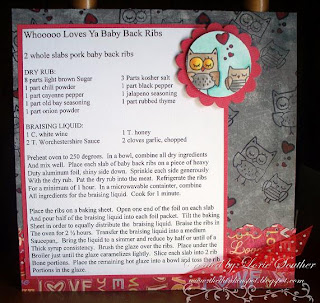 Whooooo Loves Ya Baby Back Ribs
2 whole slabs pork baby back ribs
DRY RUB:
8 parts light brown Sugar 3 Parts kosher salt
1 part chili powder 1 part black pepper
1 part cayenne pepper 1 jalapeno seasoning
1 part old bay seasoning 1 part rubbed thyme
1 part onion powder
BRAISING LIQUID:
1 C. white wine 1 T. honey
2 T. Worchestershire Sauce 2 cloves garlic, chopped
Preheat oven to 250 degrees. In a bowl, combine all dry ingredients
And mix well. Place each slab of baby back ribs on a piece of heavy
Duty aluminum foil, shiny side down. Sprinkle each side generously
With the dry rub. Pat the dry rub into the meat. Refrigerate the ribs
For a minimum of 1 hour. In a microwavable container, combine
All ingredients for the braising liquid. Cook for 1 minute.
Place the ribs on a baking sheet. Open one end of the foil on each slab
And pour half of the braising liquid into each foil packet. Tilt the baking
Sheet in order to equally distribute the braising liquid. Braise the ribs in
The oven for 2 ½ hours. Transfer the braising liquid into a medium
Saucepan,. Bring the liquid to a simmer and reduce by half or until of a
Thick syrup consistency. Brush the glaze over the ribs. Place under the
Broiler just until the glaze caramelizes lightly. Slice each slab into 2 rib
Bone portions. Place the remaining hot glaze into a bowl and toss the rib
Portions in the glaze.
by: Lorie Souther